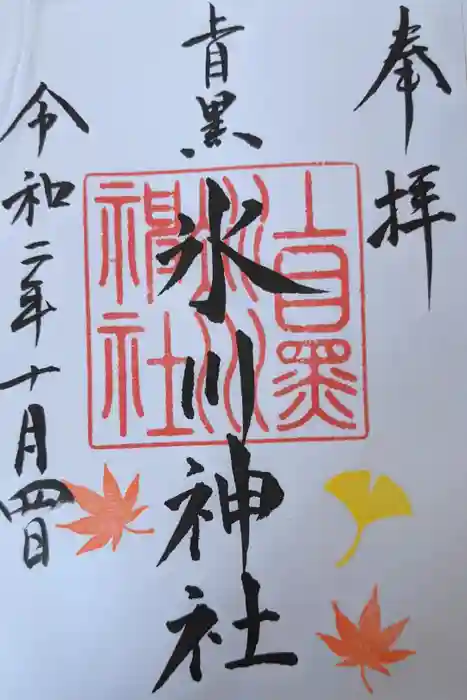 奉拝
上目黒
氷川神社
令和二年十月四日
上目黒
氷川
神社